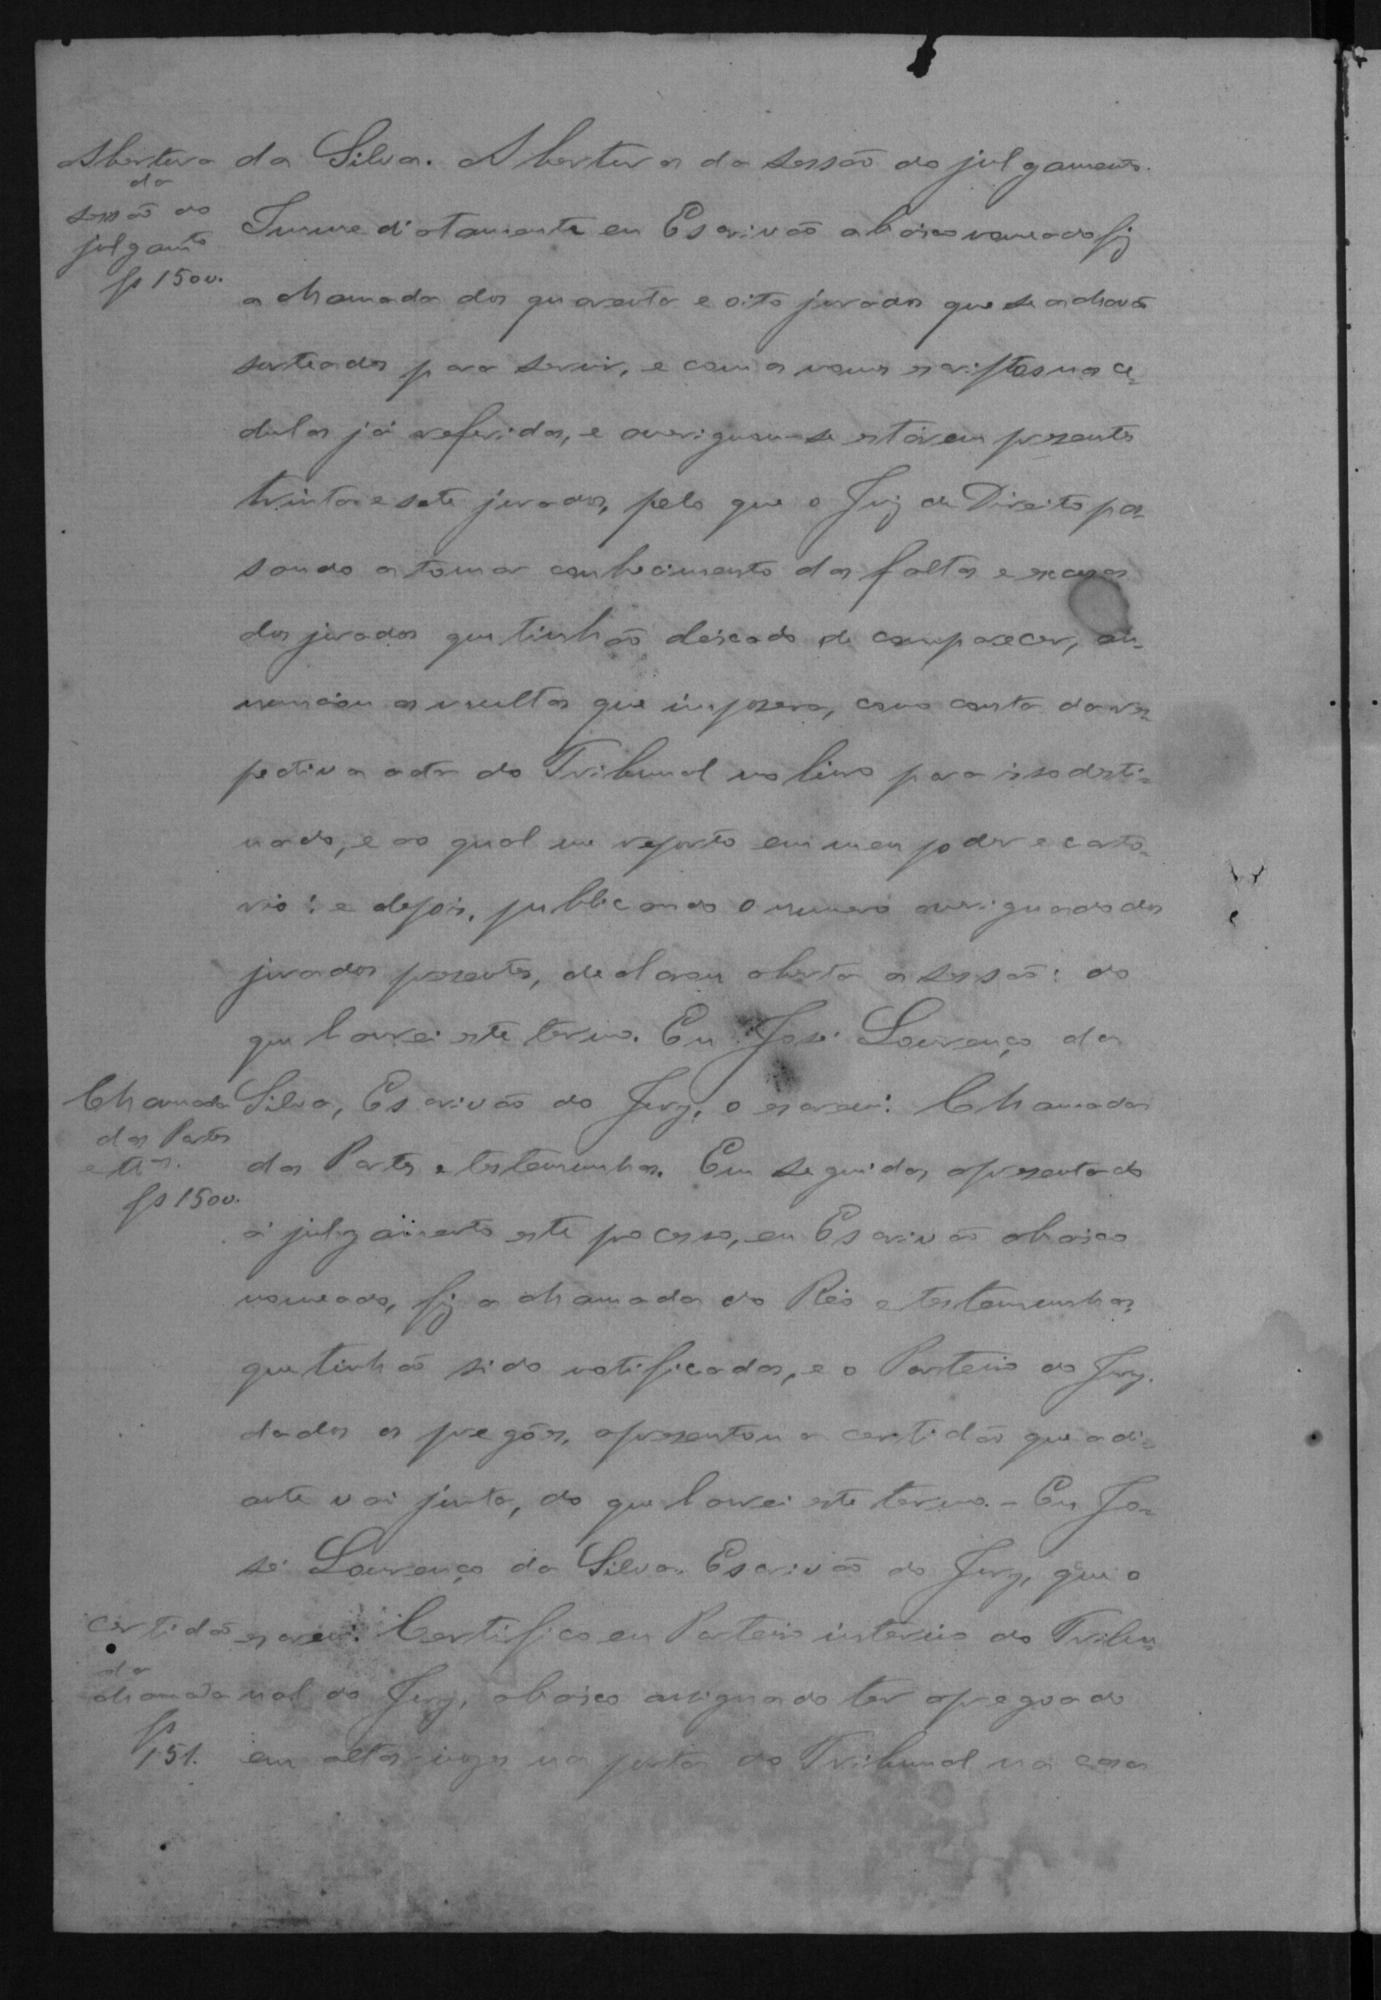 Abertura
da
sessão do
julgamto
fs 150v.
da Silva. Abertura da sessão do julgamento.
Immediatamente eu Escrivão abaixo nomeado fiz
a chamada dos quarenta e oito jurados que se achavão
sorteados para servir, e com os nomes escriptos nas ce-
dulas já referidas, e averiguou-se estarem presentes
trinta e sete jurados, pelo que o Juiz de Direito pas-
sando a tomar conhecimento das faltas e escusas
dos jurados que tinhão deixado de comparecer, an-
nunciou as multas que impozera, como consta da res-
pectiva acta do Tribunal no livro para isso desti-
nado, e ao qual me reporto em meu poder e carto-
rio: e depois, publicando o numero averiguado dos
jurados presentes, declarou aberta a sessão: do
que lavrei este termo. Eu José Lourenço da
Chamada
das Partes
e ttas.
fs 150v.
Silva, Escrivão do Jury, o escrevi. Chamada
das Partes e testemunhas. Em seguida, apresentado
á julgamento este processo, eu Escrivão abaixo
nomeado, fiz a chamada do Réo e testemunhas,
que tinhão sido notificadas, e o Porteiro do Jury,
dados os pregões, apresentou a certidão que adi-
ante vai junta, do que lavrei este termo. - Eu Jo-
sé Lourenço da Silva, Escrivão do Jury, que o
certidão
da
chamada
fs 151.
escrevi. Certifico eu Porteiro interino do Tribu-
nal do Jury, abaixo assignado ter apregoado
em altas vozes na porta do Tribunal na casa